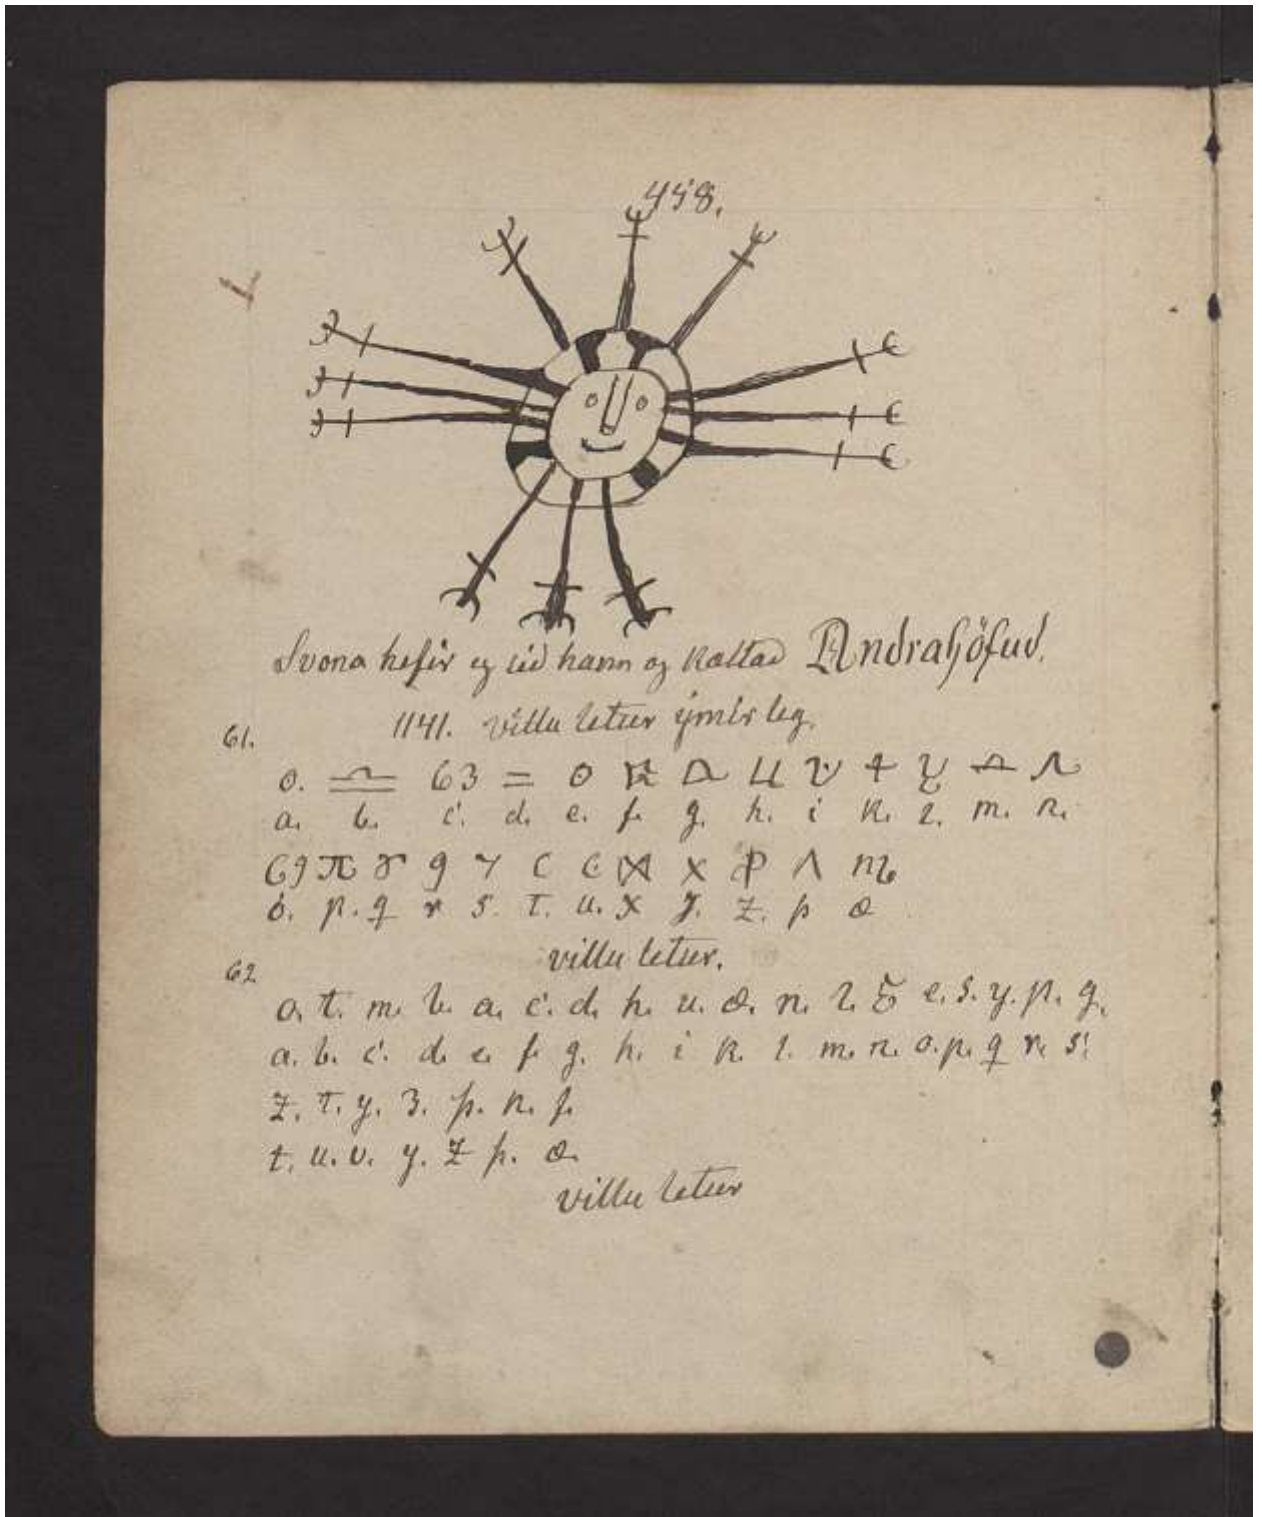 458.
Svona hefir eg séð hann og kallað Andrahöfud.
1141. villu letur ýmisleg.
61.
o. ♎ 63 = ʘ + ♎
a. b. c. d. e. f. g. h. i k. l. m. n.
69 π ɤ 9 C x Λ
ó. p. q r s. t. u. x y. z. þ æ
villu letur.
62
o. t. m. b. a. c. d. h. u. æ. n. l. e. s. y. p. g.
a. b. c. d. e. f. g. h. i k. l. m. n. o. p. q r. s.
z. t. y. 3. þ. k. f.
t. u. v. y. z þ. æ.
villu letur